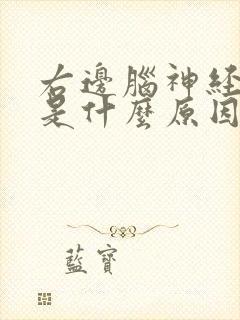 右邊腦神経
是什麼原因
藍寶